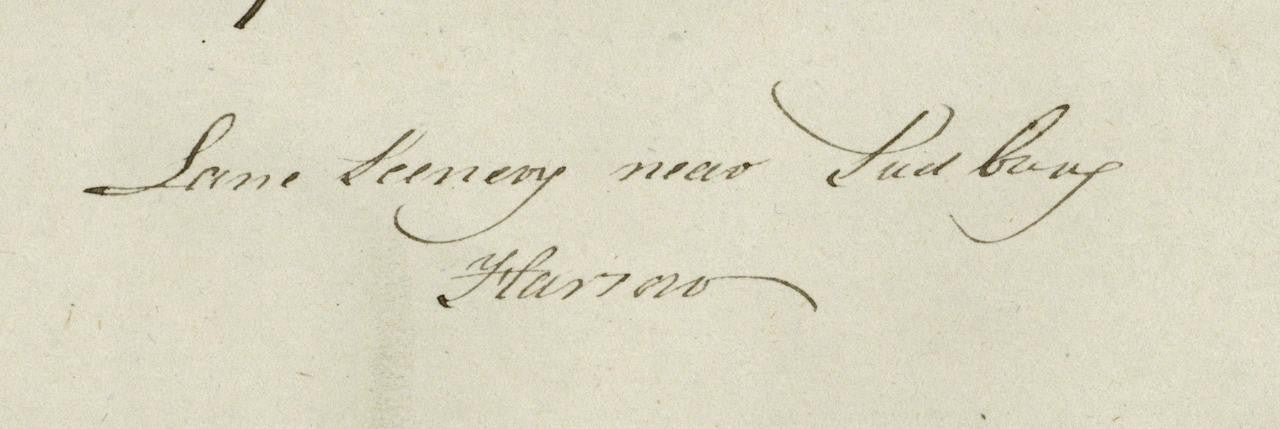 Lane Scenery near Sudbury
Harrow